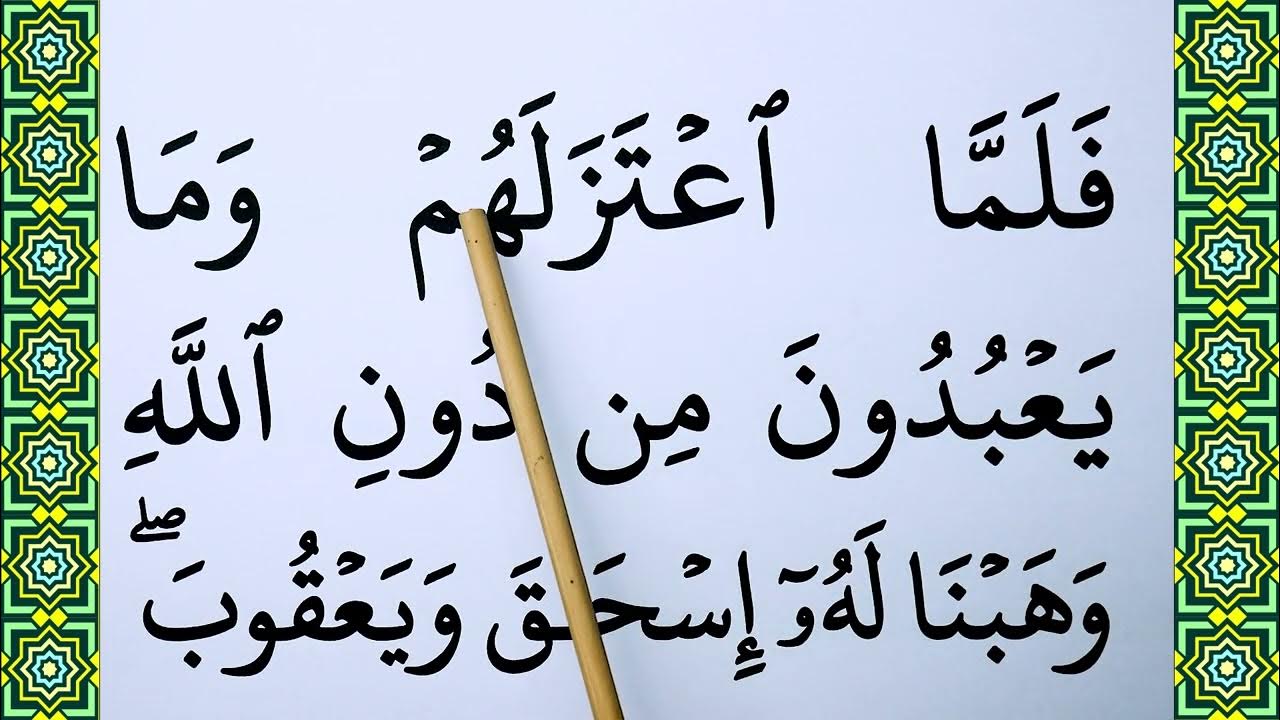 فَلَمَّا ٱعۡتَزَلَهُمۡ وَمَا
يَعۡبُدُونَ مِن دُونِ ٱللَّهِ
وَهَبۡنَا لَهُۥٓ إِسۡحَـٰقَ وَيَعۡقُوبَۖ